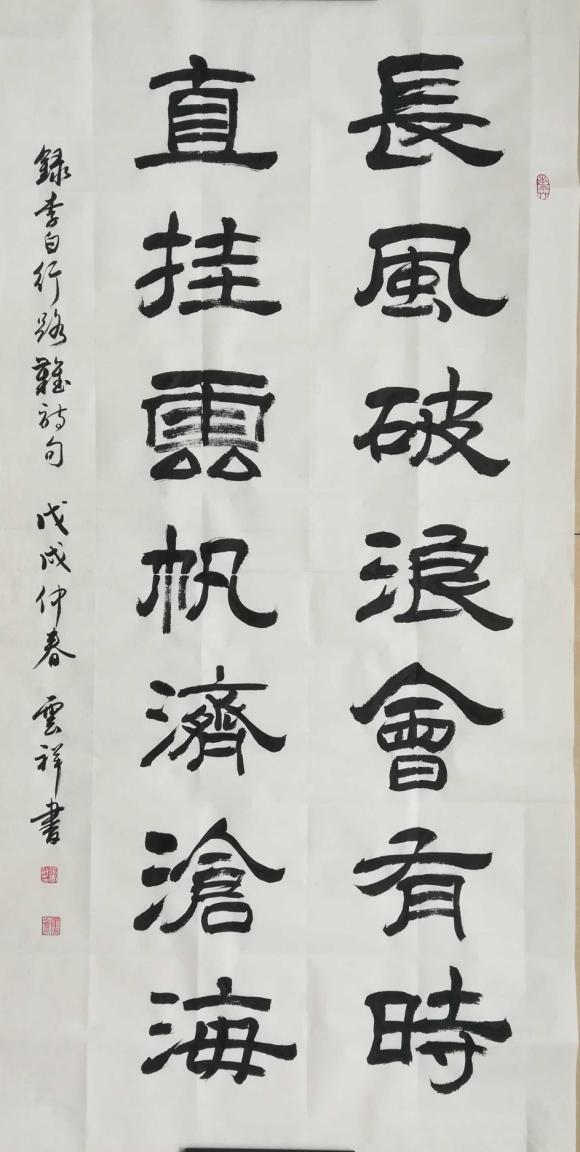 長風破浪會有時
直挂雲帆濟滄海
録李白行路難詩句 戊戌仲春 雲祥書